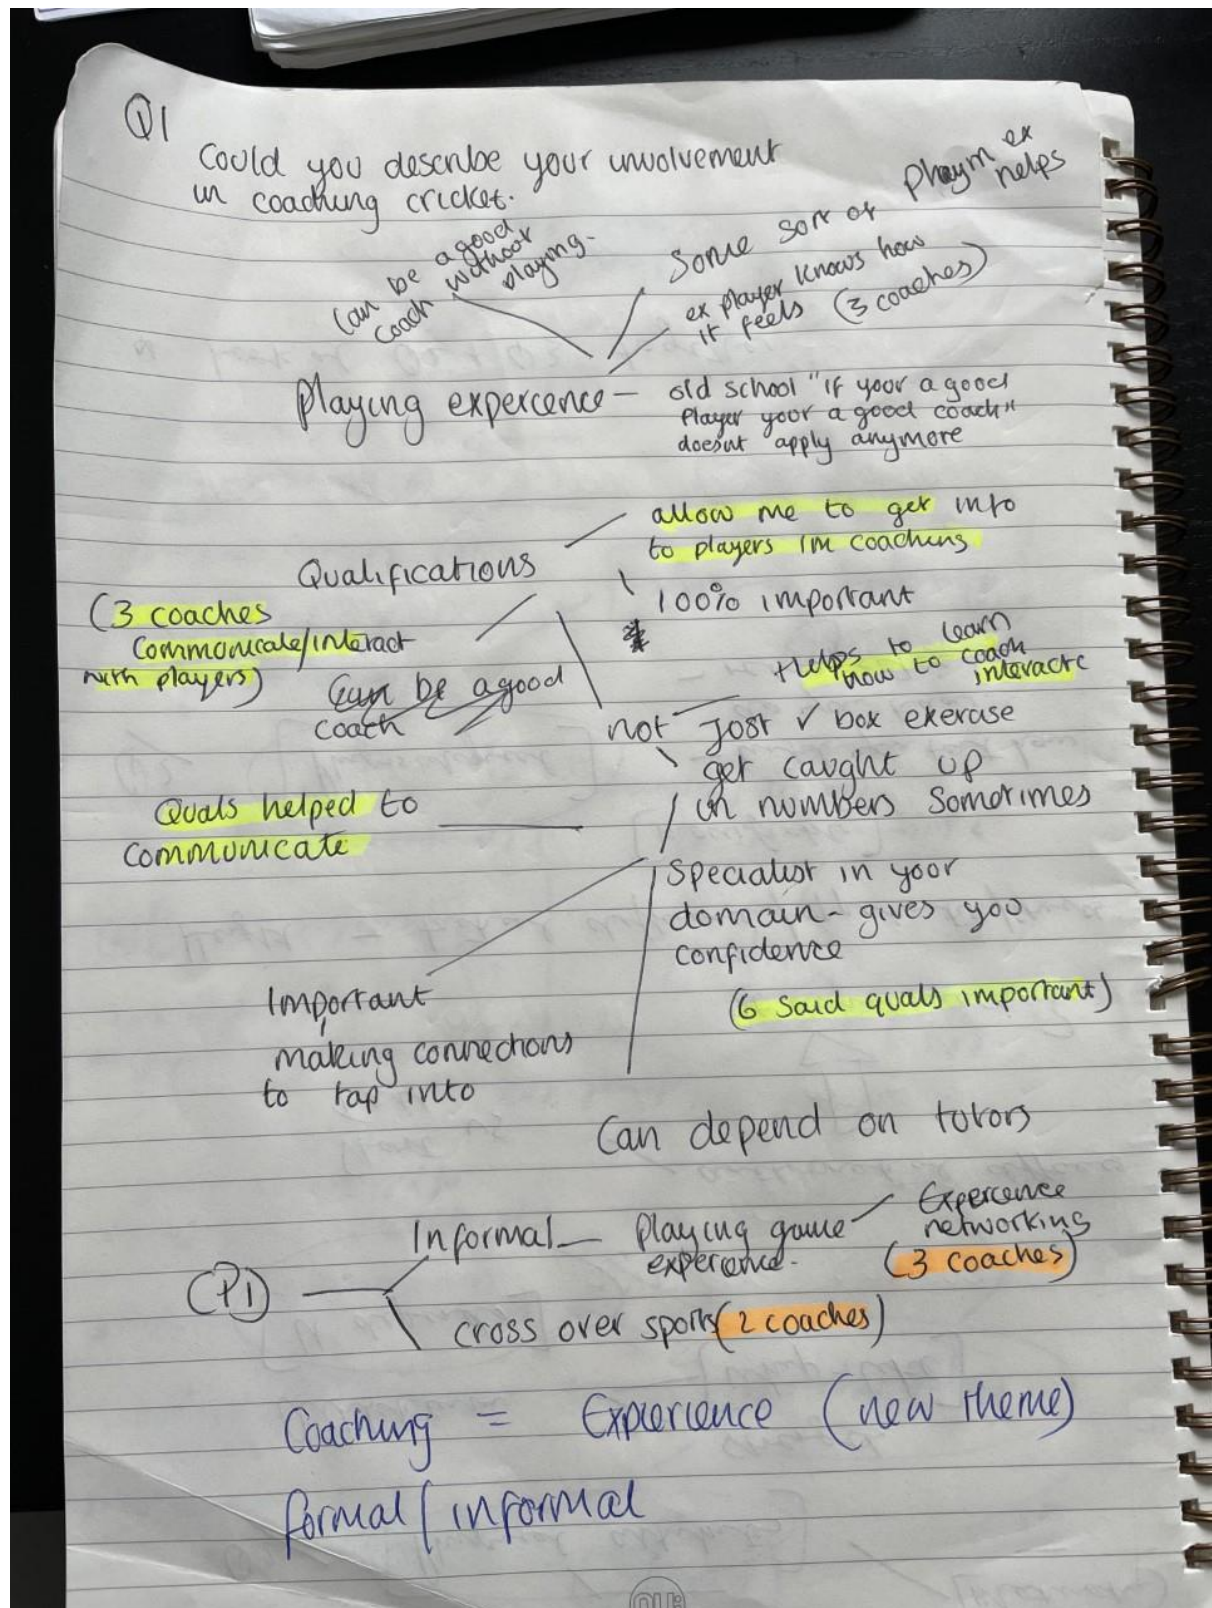 Q1
Could you describe your involvement
in coaching cricket.
Can be a good
coach without
playing.
Some sort of playin ex
helps
ex player knows how
it feels (3 coaches)
Playing experence
old school "if your a good
Player your a good coach"
doesnt apply anymore
Qualifications
allow me to get info
to players im coaching
100% important
(3 coaches
Communicate/interact
with players)
Can be a good
coach
Helps to learn
how to coach
interact
not just ✓ box exercise
get caught up
in numbers sometimes
Quals helped to
communicate
Specialist in your
domain - gives you
confidence
(6 said quals important)
Important
making connections
to tap into
Can depend on tutors
(P1)
Informal — Playing game
experience.
Experence
networking
(3 coaches)
cross over sports (2 coaches)
Coaching = Experience (new theme)
formal/informal